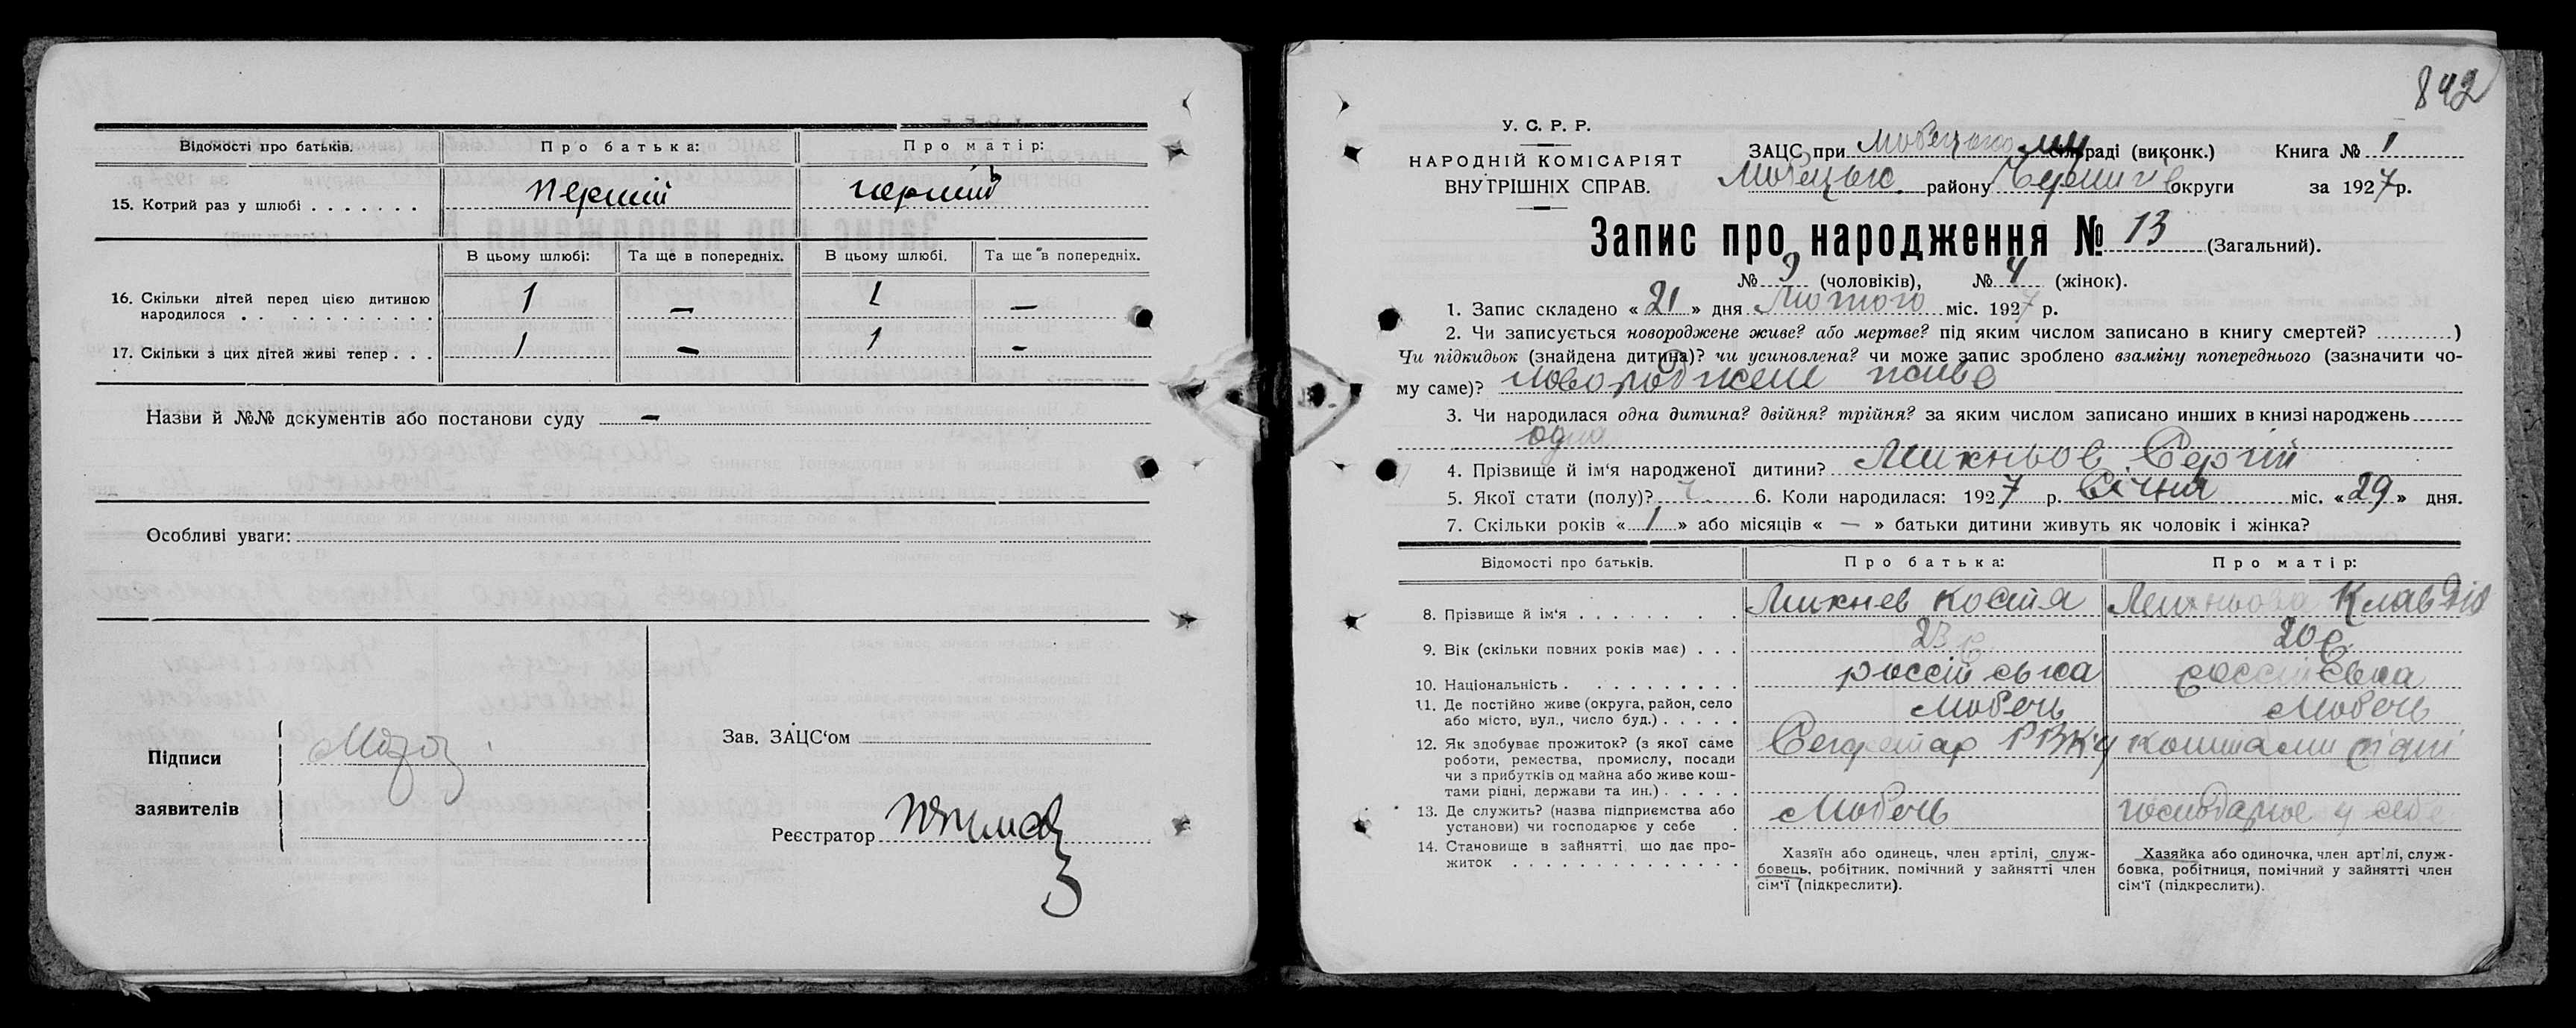 Відомості про батьків. Про батька: Про матір:
15. Котрий раз у шлюбі . . . . . . . перший перший
В цьому шлюбі: Та ще в попередніх. В цьому шлюбі. Та ще в попередніх.
16. Скільки дітей перед цією дитиною
народилося . . . . . . . . . . . 1 — 1 —
17. Скільки з цих дітей живі тепер . . . 1 — 1 —
Назви й №№ документів або постанови суду —
Особливі уваги:
Підписи
заявителів
Зав. ЗАЦС'ом
Реєстратор
842
У. С. Р. Р.
НАРОДНІЙ КОМІСАРІЯТ
ВНУТРІШНІХ СПРАВ.
ЗАЦС при Любецькому раді (виконк.) Книга № 1
Любецького району Чернигів округи за 1927 р.
Запис про народження № 13 (Загальний).
№ 9 (чоловіків), № 4 (жінок).
1. Запис складено « 21 » дня Лютого міс. 1927 р.
2. Чи записується новороджене живе? або мертве? під яким числом записано в книгу смертей? ...........)
Чи підкидьок (знайдена дитина)? чи усиновлена? чи може запис зроблено взаміну попереднього (зазначити чо-
му саме)? новороджене живе
3. Чи народилася одна дитина? двійня? трійня? за яким числом записано инших в книзі народжень
одна
4. Прізвище й ім'я народженої дитини? Михньов Сергій
5. Якої стати (полу)? ч. 6. Коли народилася: 1927 р. Січня міс. « 29 » дня.
7. Скільки років « 1 » або місяців « — » батьки дитини живуть як чоловік і жінка?
Відомості про батьків. Про батька: Про матір:
8. Прізвище й ім'я . . . . . . . . Михнев Костя Михньова Клавдія
9. Вік (скільки повних років має) . . . 23 20
10. Національність . . . . . . . . . . російська російська
11. Де постійно живе (округа, район, село
або місто, вул., число буд.) . . . . . Любеч Любеч
12. Як здобуває прожиток? (з якої саме
роботи, ремества, промислу, посади
чи з прибутків од майна або живе кош-
тами рідні, держави та ин.) . . . . . Секретар РВК'у коштами рідні
13. Де служить? (назва підприємства або
установи) чи господарює у себе . Любеч господарює у себе
14. Становище в зайнятті, що дає про-
житок . . . . . . . . . . . . . .
Хазяїн або одинець, член артілі, служ-
бовець, робітник, помічний у зайнятті член
сім'ї (підкреслити).
Хазяйка або одиночка, член артілі, служ-
бовка, робітниця, помічний у зайнятті член
сім'ї (підкреслити).